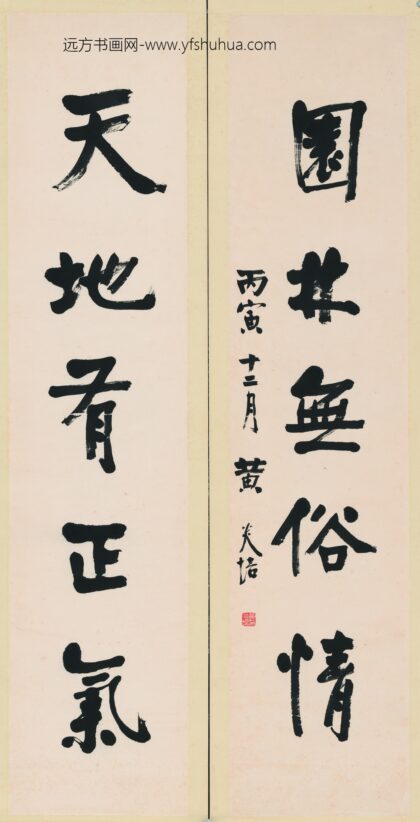 远方书画网-www.yfshuhua.com
園林無俗情
丙寅十二月黄炎培
天地有正氣